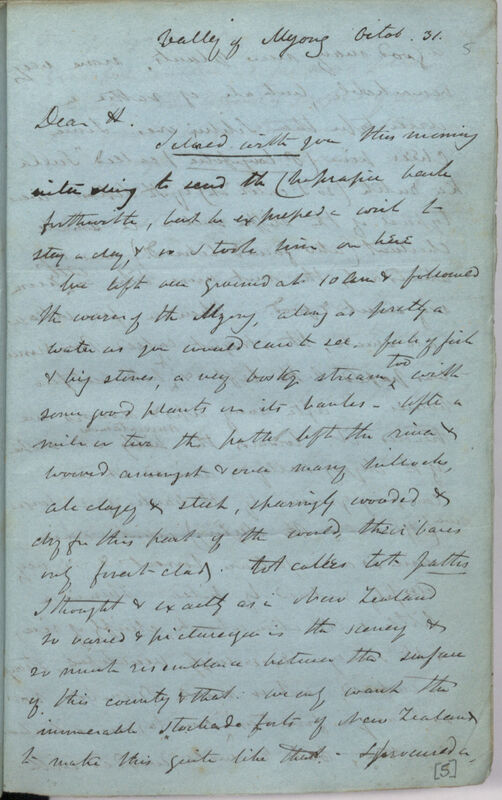 Valley of Myong Octob. 31. 5
Dear H.
I closed with you this morning
intending to send the Chuprapie back
forthwith, but he expressed a wish to
stay a day, & so I took him on here
We left our ground at 10 am & followed
the course of the Myong, along as pretty a
water as you would care to see, full of fish
& big stones, a very bosky stream too with
some good plants on its banks - After a
mile or two the path left the river &
wound amongst & over many hillocks,
all clayey & steep, sparingly wooded &
dry for this part of the world, their bases
only forest-clad.
I thought & exactly as in New Zealand
so varied & picturesque is the scenery &
so much resemblance between the surface
of this country & that. we only want the
innumerable stockade forts of New Zealand
to make this quite like that - I procured a
[5]